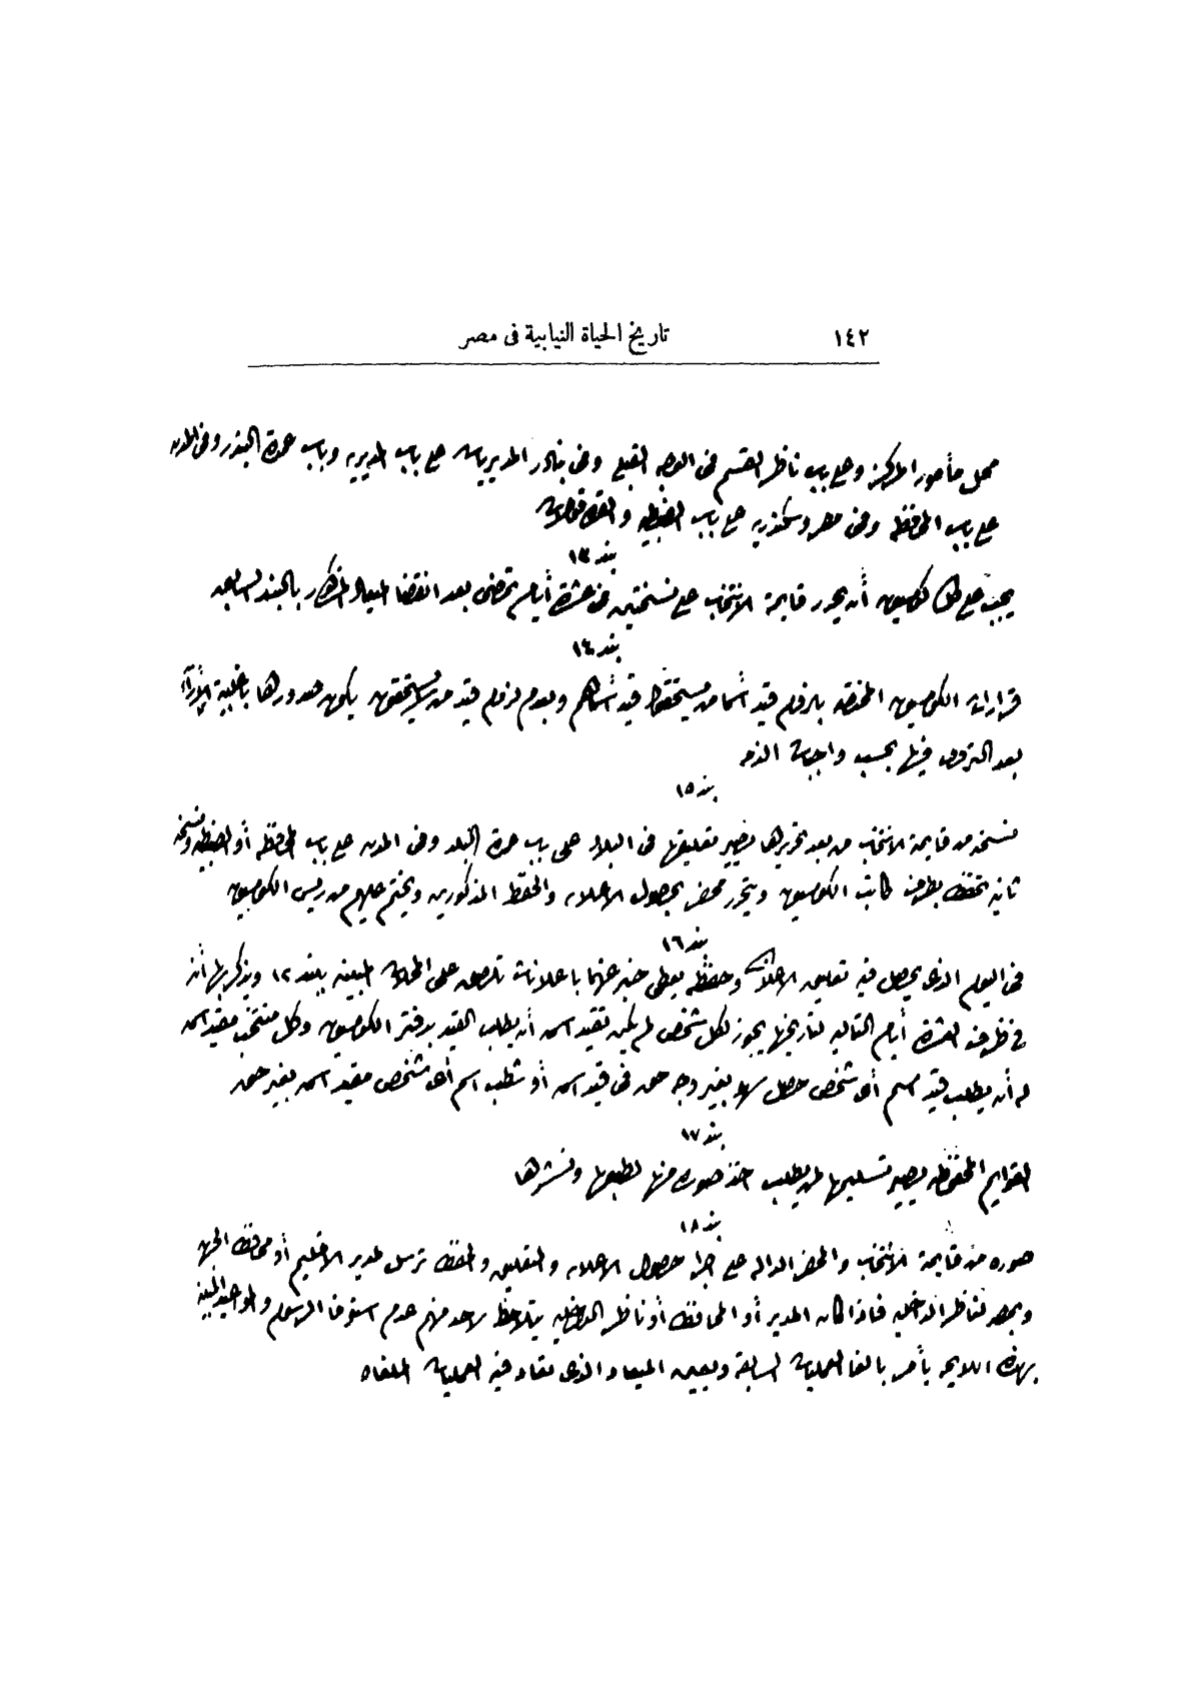 ١٤٢ تاريخ الحياة النيابية فى مصر
محل مأمور المركز وعلى باب ناظر القسم فى الوجه القبلى وفى بنادر المديريات على باب المديريه وباب عمدة البندر وفى المدن
على باب المحافظه وفى مصر وسكندريه على باب الضبطيه والقره قولات
بند ١٣
يجب على كل كومسيون أن يحرر قايمة الانتخاب على نسختين فى عشرة أيام تمضى بعد انقضا الميعاد المذكور بالبند السابق
بند ١٤
قرارات الكومسيون المختصه بلزوم قيد أسما من يستحقوا قيد أسماهم وبعدم لزوم قيد من لا يستحقون يكون صدورها باغلبية الأرآء
بعد التروى فيها بحسب واجبات الذمه
بند ١٥
نسخه من قايمة الانتخاب من بعد تحريرها يصير تعليقها فى البلاد على باب عمدة البلد وفى المدن على باب المحافظه أو الضبطيه ونسخه
ثانيه تحفظ بطرف كاتب الكومسيون ويتحرر محضر بحصول الاعلان والحفظ المذكورين ويختم عليهم من ريس الكومسيون
بند ١٦
فى اليوم الذى يحصل فيه تعليق الاعلان وحفظه يعطى خبر عنهما باعلانات تلصق على المحلات المبينه ببند ١٢ ويذكر بها أن
فى ظرف العشرة أيام التاليه لتاريخها يجوز لكل شخص لم يكن تقيد اسمه أن يطلب القيد بدفتر الكومسيون وكل منتخب مقيد اسمه
له أن يطلب قيد اسم أى شخص حصل سهو بغير وجه حق فى قيد اسمه أو شطب اسم أى شخص مقيد اسمه بغير حق
بند ١٧
القوايم المحفوظه يصير تسليمها لمن يطلب اخذ صوره منها لطبعها ونشرها
بند ١٨
صوره من قايمة الأنتخاب والمحضر الداله على اجرا حصول الاعلان والتعليق والحفظ ترسل لمدير الاقليم أو محافظ الجهه
وبمصر لناظر الداخليه فاذا كان المدير أو المحافظ أو ناظر الداخليه يتلاحظ لاحد منهم عدم استوفا الرسوم والمواعيد المبينه
بهذه اللايحه يأمر بالغا العمليات السابقة ويعين الميعاد الذى تعاد فيه العمليات الملغاه